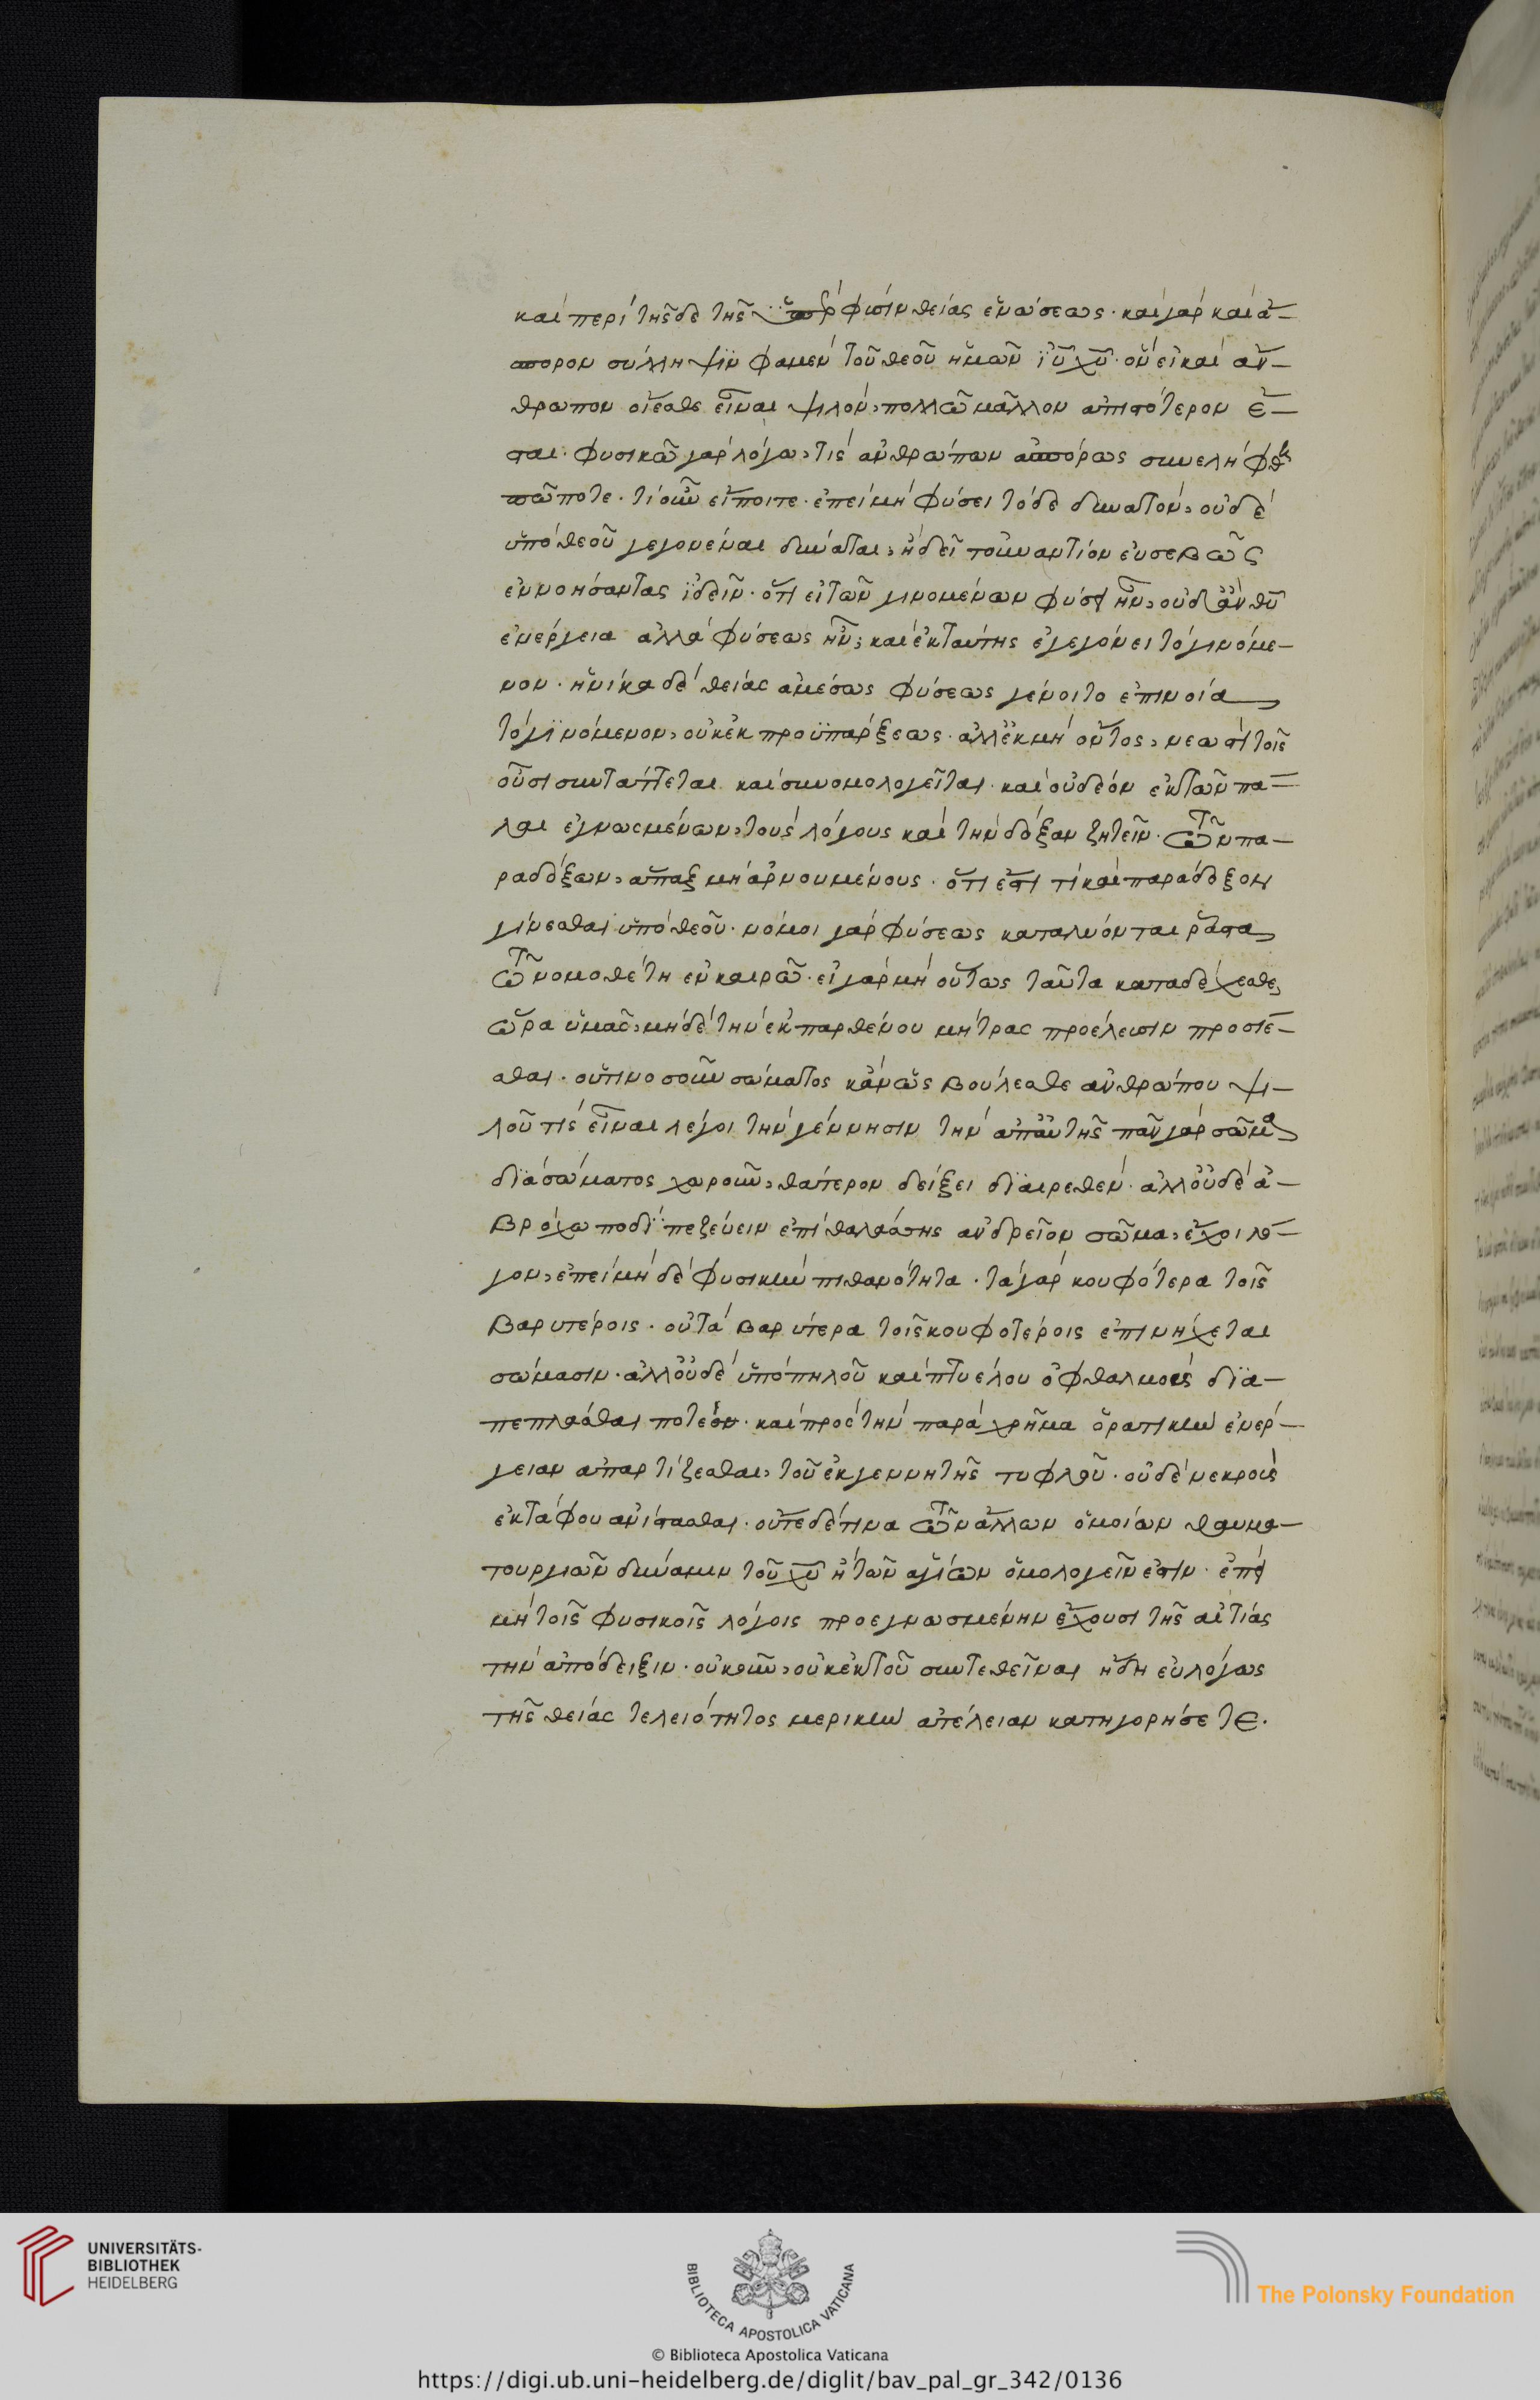 καὶ περὶ τῆσδε τῆς ὑπὲρ φύσιν θείας ἑνώσεως· καὶ γὰρ καὶ ἄ–
σπορον σύλληψϊν φαμὲν τοῦ θεοῦ ἡμῶν ϊ̅υ̅ χ̅υ̅· ὃν εἰ καὶ ἄν–
θρωπον οἴεσθε εἶναι ψιλὸν, πολλῶ μᾶλλον ἀπιστότερον ἔ–
σται· φυσικῶ γὰρ λόγω, τίς ἀνθρώπων ἀσπόρως συνελήφθη
πώποτε· τί οὖν εἴποιτε· ἐπεὶ μὴ φύσει τόδε δυνατὸν, οὐδὲ
ὑπὸ θεοῦ γεγονέναι δύναται, ἢ δεῖ τοὐναντίον εὐσεβῶς
ἐννοήσαντας ϊδεῖν· ὅτι εἰ τῶν γινομένων φύσις ἦν, οὐδ' ἂν θ̅υ̅
ἐνέργεια ἀλλὰ φύσεως ἦν, καὶ ἐκ ταύτης ἐγεγόνει τὸ γινόμε–
νον· ἡνίκα δὲ θείας ἀμέσως φύσεως γένοιτο ἐπινοία
τὸ γϊνόμενον, οὐκ ἐκ προϋπάρξεως· ἀλλ' ἐκ μὴ ὄντος, νεωστὶ τοῖς
οὖσι συντάττεται καὶ συνομολογεῖται· καὶ οὐδέον ἐκ τῶν πά–
λαι ἐγνωσμένων, τοὺς λόγους καὶ τὴν δόξαν ζητεῖν· τῶν πα–
ραδόξων, ἅπαξ μὴ ἀρνουμένους· ὅτι ἐστί τι καὶ παράδοξον
γίνεσθαι ὑπὸ θεοῦ· νόμοι γὰρ φύσεως καταλύονται ῥᾶστα
τῶ νομοθέτη ἐν καιρῶ· εἰ γὰρ μὴ οὕτως ταῦτα καταδέχεσθε,
ὥρα ὑμᾶς, μηδὲ τὴν ἐκ παρθένου μήτρας προέλευσιν προσίε–
σθαι· οὕτινοσοῦν σώματος κἂν ὡς βούλεσθε ἀνθρώπου ψι–
λοῦ τίς εἶναι λέγοι τὴν γέννησιν τὴν ἀπ' αὐτῆς πᾶν γὰρ σῶμα
δϊὰ σώματος χωροῦν, θάτερον δείξει δϊαιρεθέν· ἀλλ' οὐδὲ ἀ–
βρόχω ποδϊ πεζεύειν ἐπὶ θαλάσσης ἀνδρεῖον σῶμα, ἔχοι λό–
γον, ἐπεὶ μὴ δὲ φυσικὴν πιθανότητα· τὰ γὰρ κουφότερα τοῖς
βαρυτέροις· οὐ τὰ βαρύτερα τοῖς κουφοτέροις ἐπινήχεται
σώμασιν· ἀλλ' οὐδὲ ὑπὸ πηλοῦ καὶ πτυέλου ὀφθαλμοὺς δϊα–
πεπλάσθαι ποτέον· καὶ πρὸς τὴν παράχρημα ὁρατικὴν ἐνέρ–
γειαν ἀπαρτίζεσθαι, τοῦ ἐκ γεννητῆς τυφλοῦ· οὐδὲ νεκροὺς
ἐκ τάφου ἀνίστασθαι· οὔτε δέ τινα τῶν ἄλλων ὁμοίων θαυμα–
τουργιῶν δύναμιν τοῦ χ̅υ̅ ἢ τῶν ἁγίων ὁμολογεῖν ἔστιν· ἐπεὶ
μὴ τοῖς φυσικοῖς λόγοις προεγνωσμένην ἔχουσι τῆς αἰτίας
τὴν ἀπόδειξιν· οὐκοῦν, οὐκ ἐκ τοῦ συντεθεῖναι ἤδη εὐλόγως
τῆς θείας τελειότητος μερικὴν ἀτέλειαν κατηγορήσετε.
UNIVERSITÄTS-
BIBLIOTHEK
HEIDELBERG
BIBLIOTECA APOSTOLICA VATICANA
The Polonsky Foundation
© Biblioteca Apostolica Vaticana
https://digi.ub.uni-heidelberg.de/diglit/bav_pal_gr_342/0136